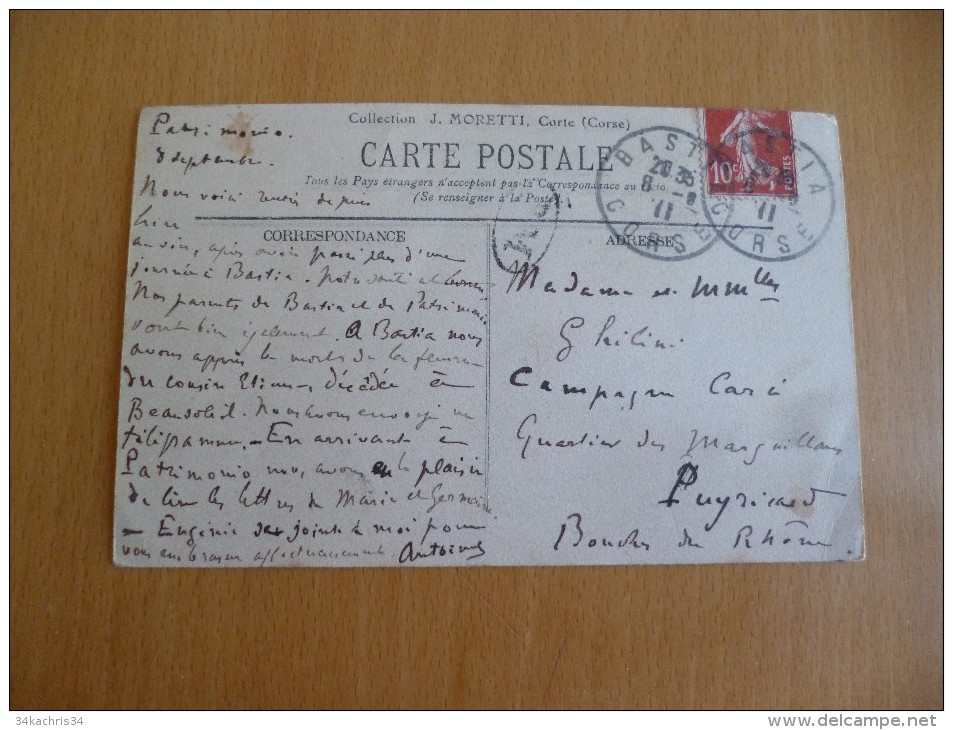 Collection J. MORETTI, Corte (Corse)
CARTE POSTALE
Tous les Pays étrangers n'acceptent pas la Correspondance au
(Se renseigner à la Poste).
CORRESPONDANCE
ADRESSE
10c
POSTES
BASTIA
20.35
8 -9
11
CORSE
BASTIA
11
CORSE
Patrimonio.
8 septembre.
Nous voici depuis
hier
au soir, après avoir passé plus d'une
journée à Bastia.
Nos parents de Bastia et de Patrimonio
vont bien également. A Bastia nous
avons appris la mort de la femme
du cousin Etienne, décédée à
Beausoleil. Nous avons envoyé un
télégramme. En arrivant à
Patrimonio nous avons eu le plaisir
de lire les lettres de Marie et Germaine
- Eugénie se joint à moi pour
vous embrasser affectueusement. Antoine
Madame et Mmelles
Ghilini
Campagne
Quartier des
Puyricard
Bouches du Rhône
34kachris34
http://www.delcampe.net